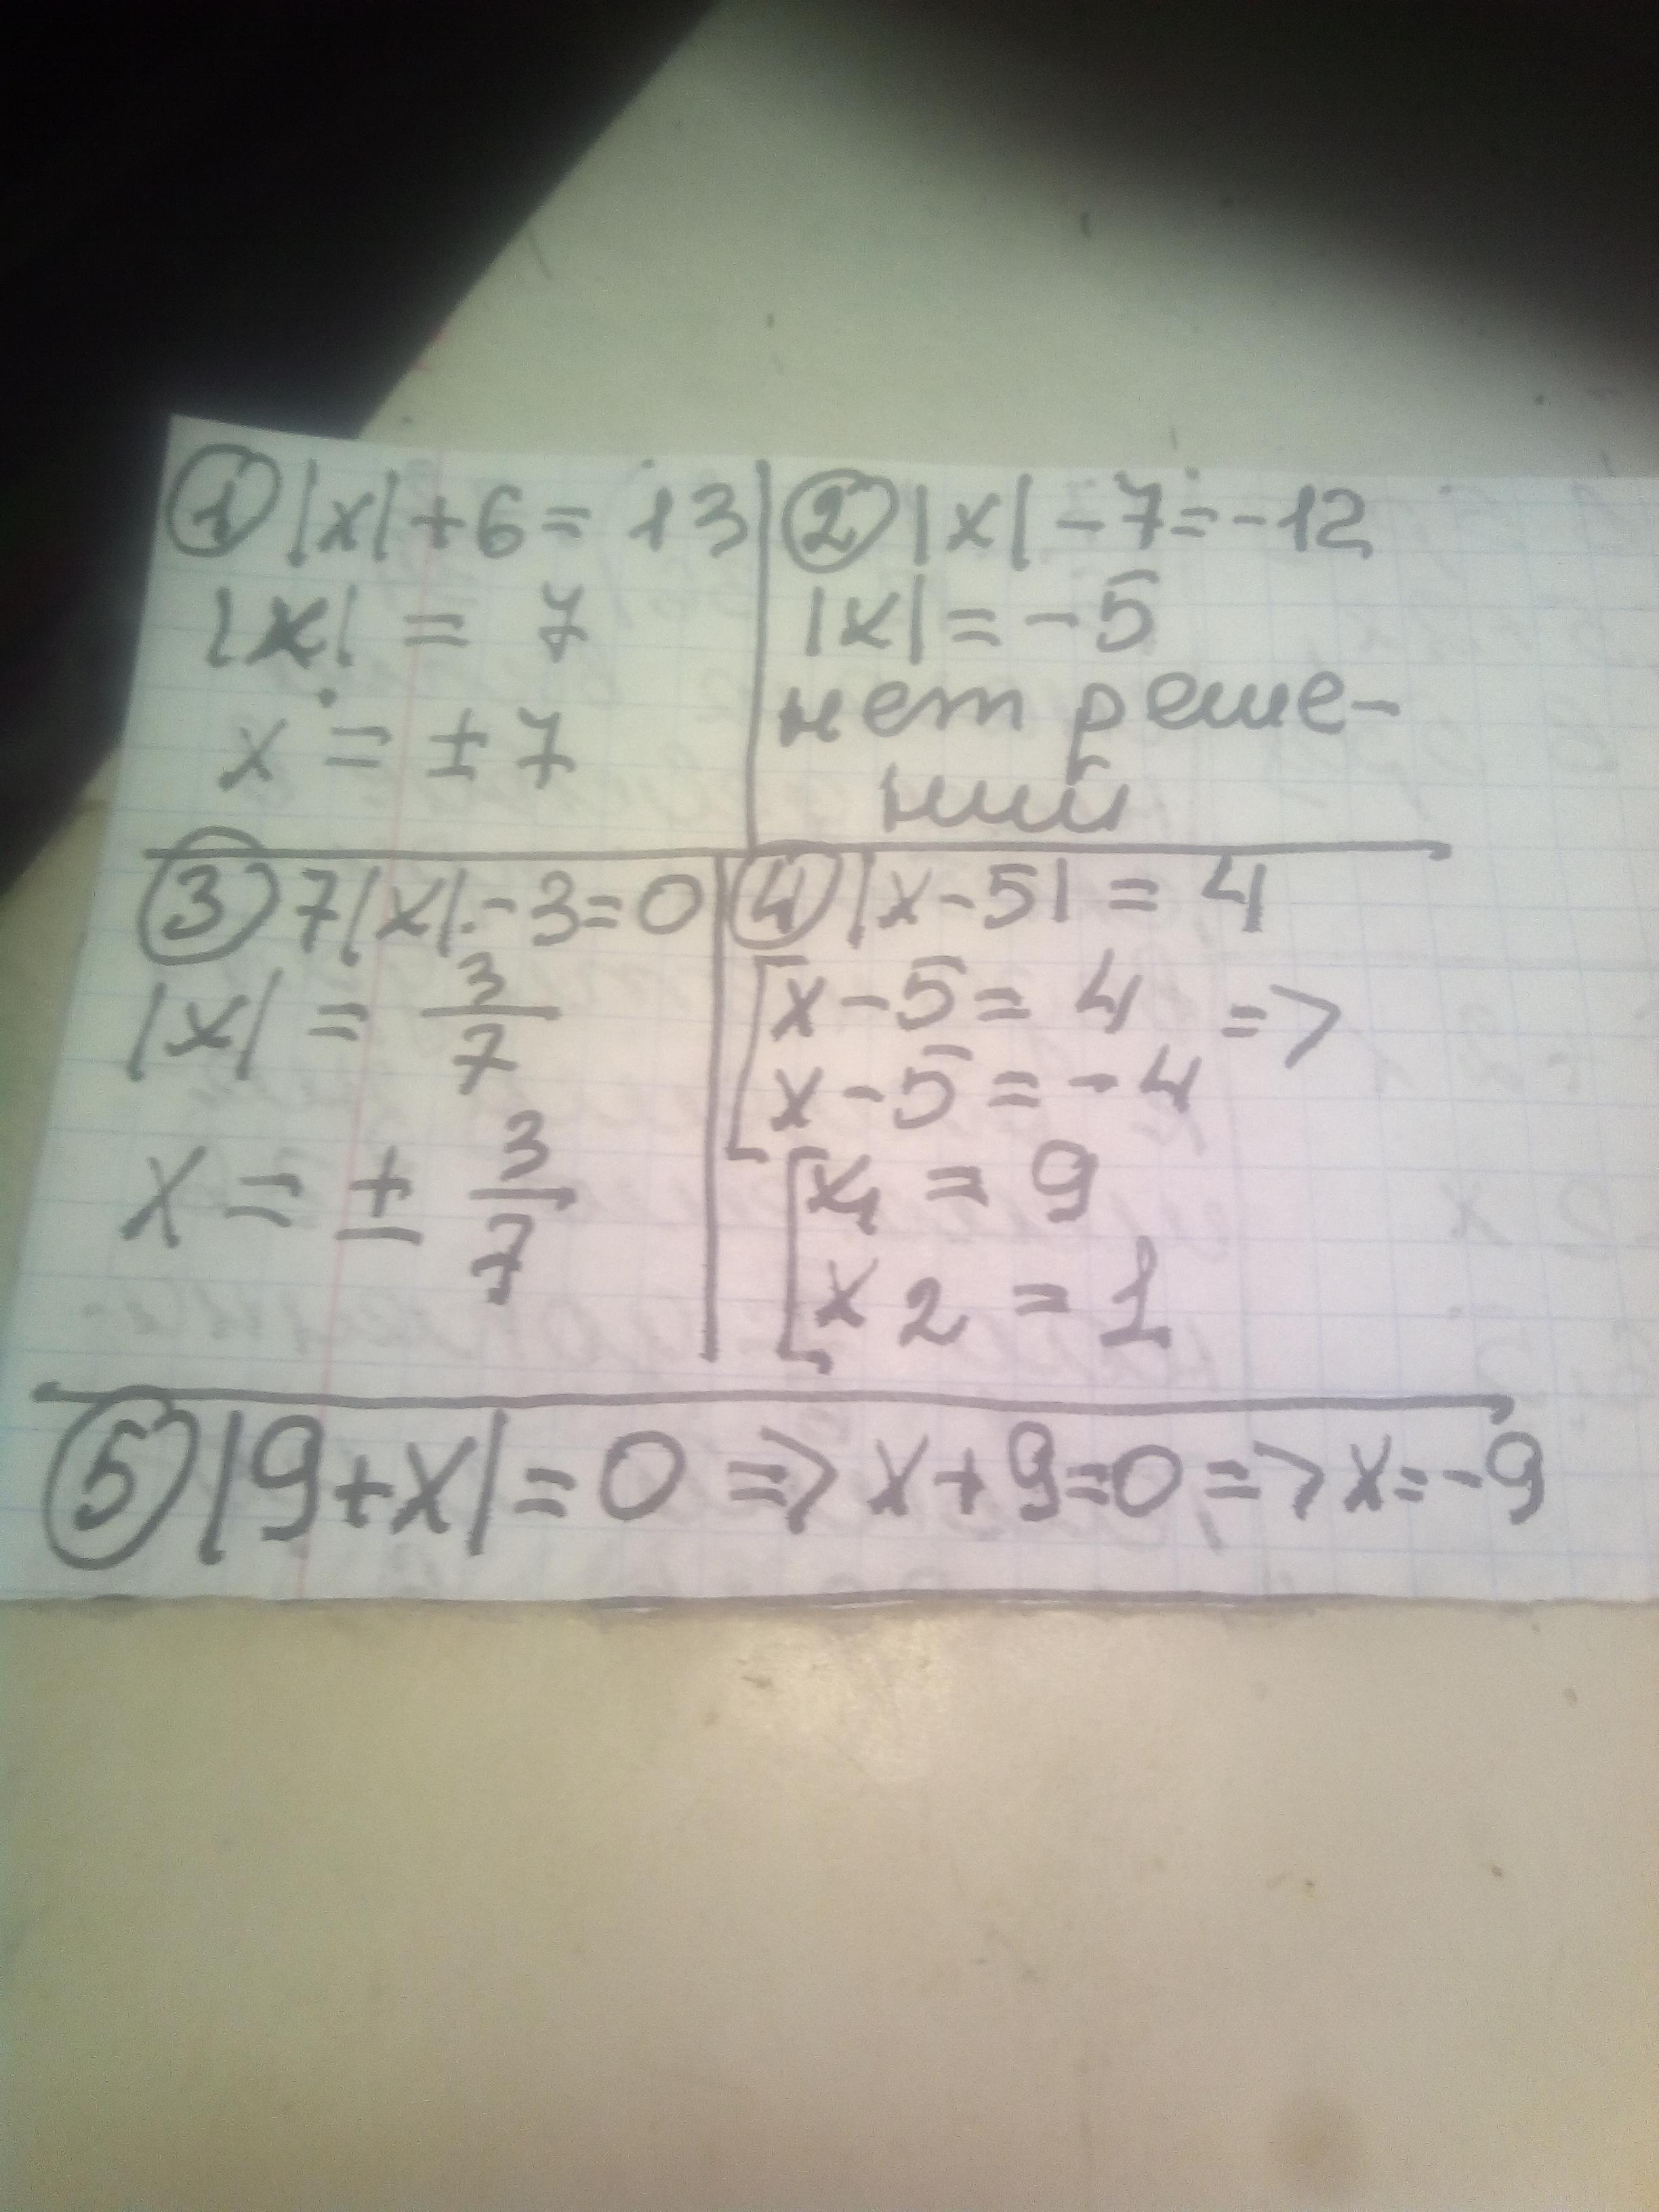 ① |x| + 6 = 13
|x| = 7
x = ± 7
② |x| - 7 = -12
|x| = -5
нет реше-
ний
③ 7|x| - 3 = 0
|x| = 3/7
x = ± 3/7
④ |x - 5| = 4
[x - 5 = 4 =>
x - 5 = -4
[x1 = 9
x2 = 1
⑤ |9 + x| = 0 => x + 9 = 0 => x = -9